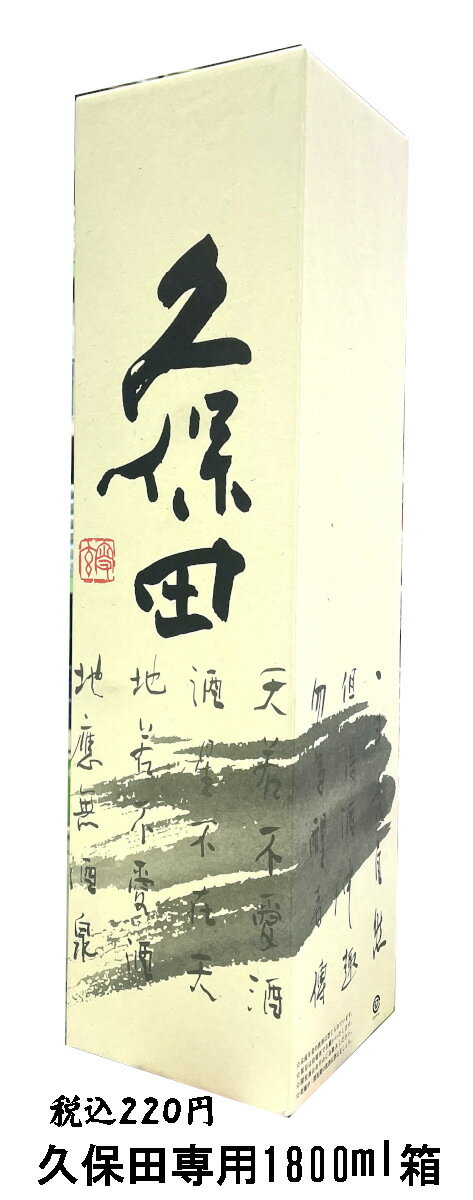 久保田
天若不愛酒
酒星不在天
地若不愛酒
地應無酒泉
但得酒中趣
勿為醒者傳
税込220円
久保田専用1800ml箱